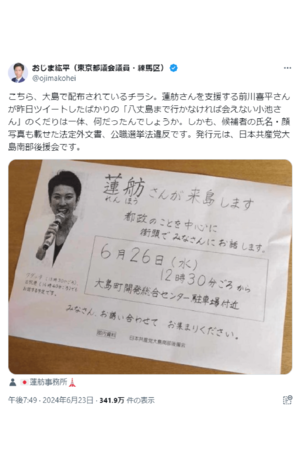 おじま紘平（東京都議会議員・練馬区）
@ojimakohei
こちら、大島で配布されているチラシ。蓮舫さんを支援する前川喜平さん
が昨日ツイートしたばかりの「八丈島まで行かなければ会えない小池さ
ん」のくだりは一体、何だったんでしょうか。しかも、候補者の氏名・顔
写真も載せた法定外文書、公職選挙法違反です。発行元は、日本共産党大
島南部後援会です。
蓮舫さんが来島します
れんほう
都政のことを中心に
街頭でみなさんにお話します。
6月26日(水)
12時30分ごろから
大島町開発総合センター駐車場付近
みなさん、お誘い合わせて お集まりください。
日本共産党大島南部後援会
蓮舫事務所
午後7:49 · 2024年6月23日 · 341.9万 件の表示